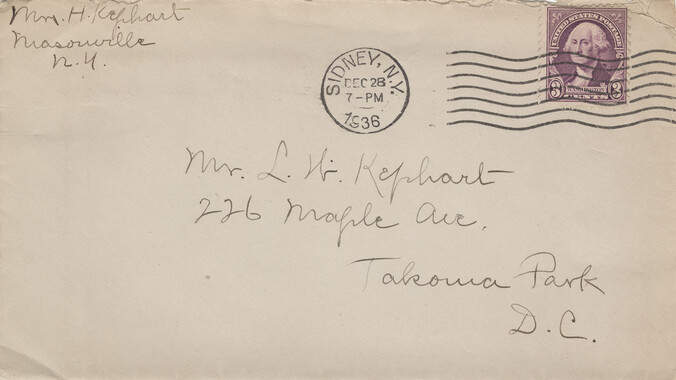 Mrs. H. Kephart
Masonville
N.Y.
SIDNEY, N.Y.
DEC 28
7-PM
1936
UNITED STATES POSTAGE
3 WASHINGTON 3
Mr. L. W. Kephart
226 Maple Ave.
Takoma Park
D.C.